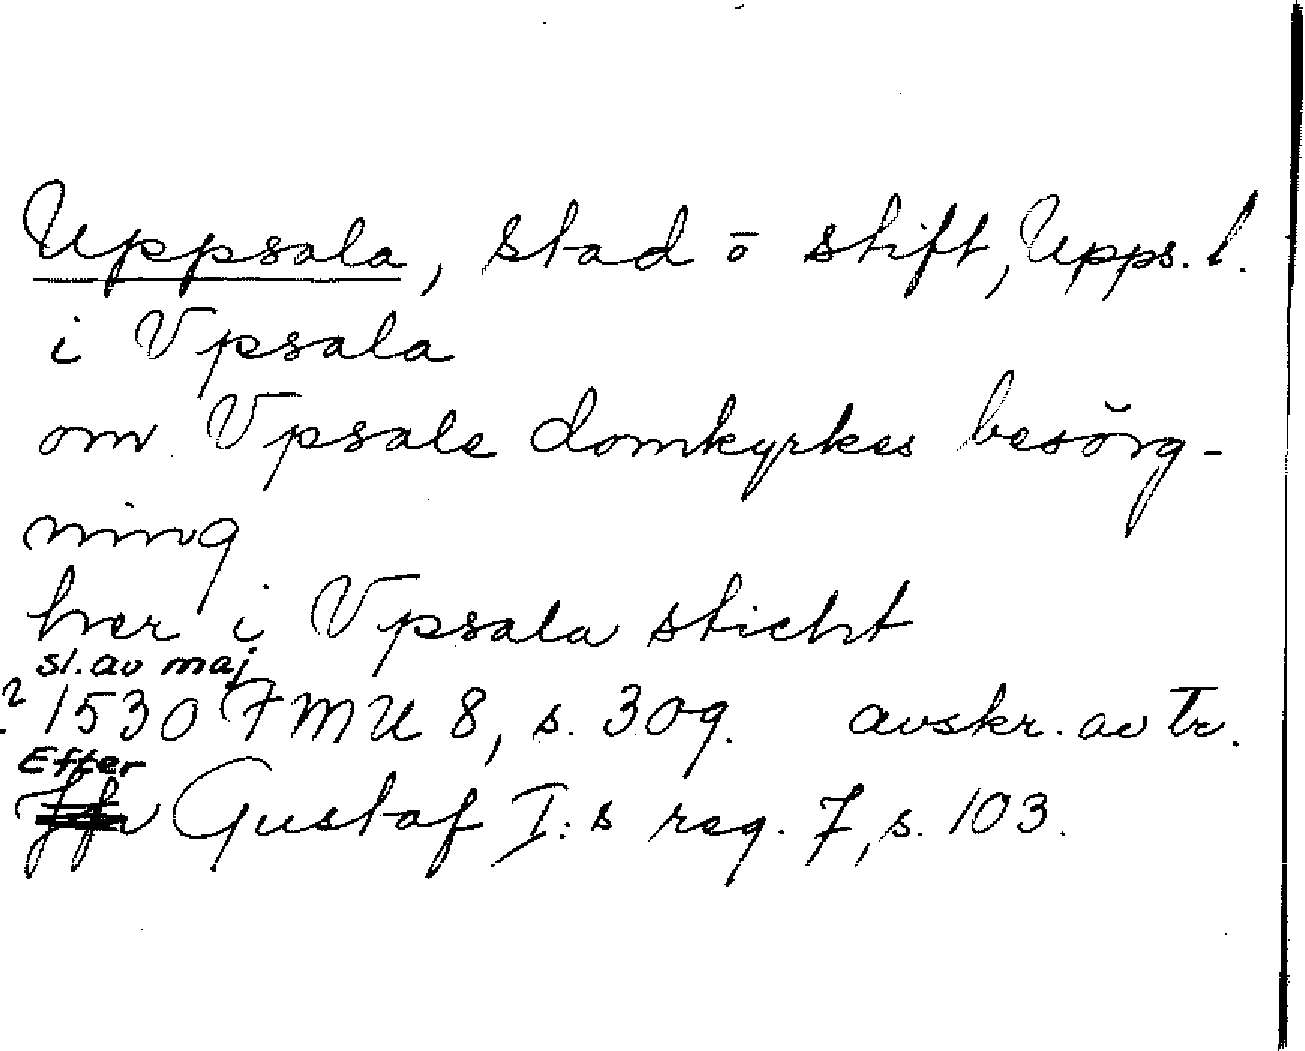 Uppsala, stad ō stift, Upps. l.
i Vpsala
om Vpsale domkyrkes besörg-
ning
hver i Vpsala sticht
sl. av maj
? 1530 FMU 8, s. 309. avskr. av Tr.
Efter
Jfr Gustaf I:s reg. 7, s. 103.